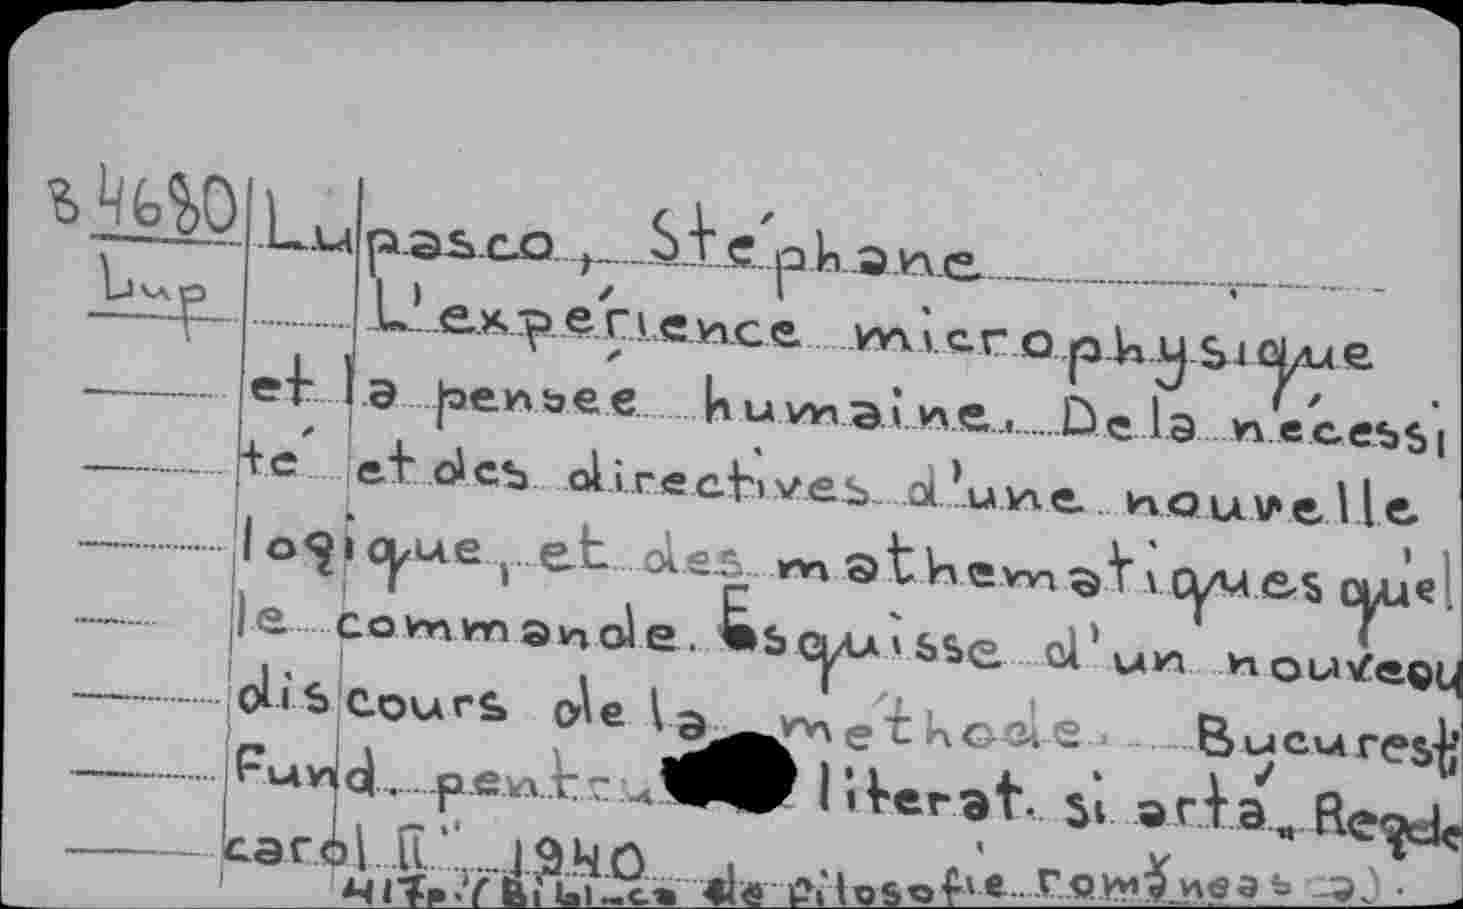 ъ 4680
Lup
Lupasco, Stéphane
L'expérience microphysique
et la pensée humaine. De la nécessi
té et des directives d'une nouvelle
logique, et des mathématiques qu'el
le commande. Esquisse d'un nouveau
discours de la méthode. București
Fund. pentru literat. si artă „Regele
carol II" 1940
417p. (Bibl-ca de Filosofie Românească).